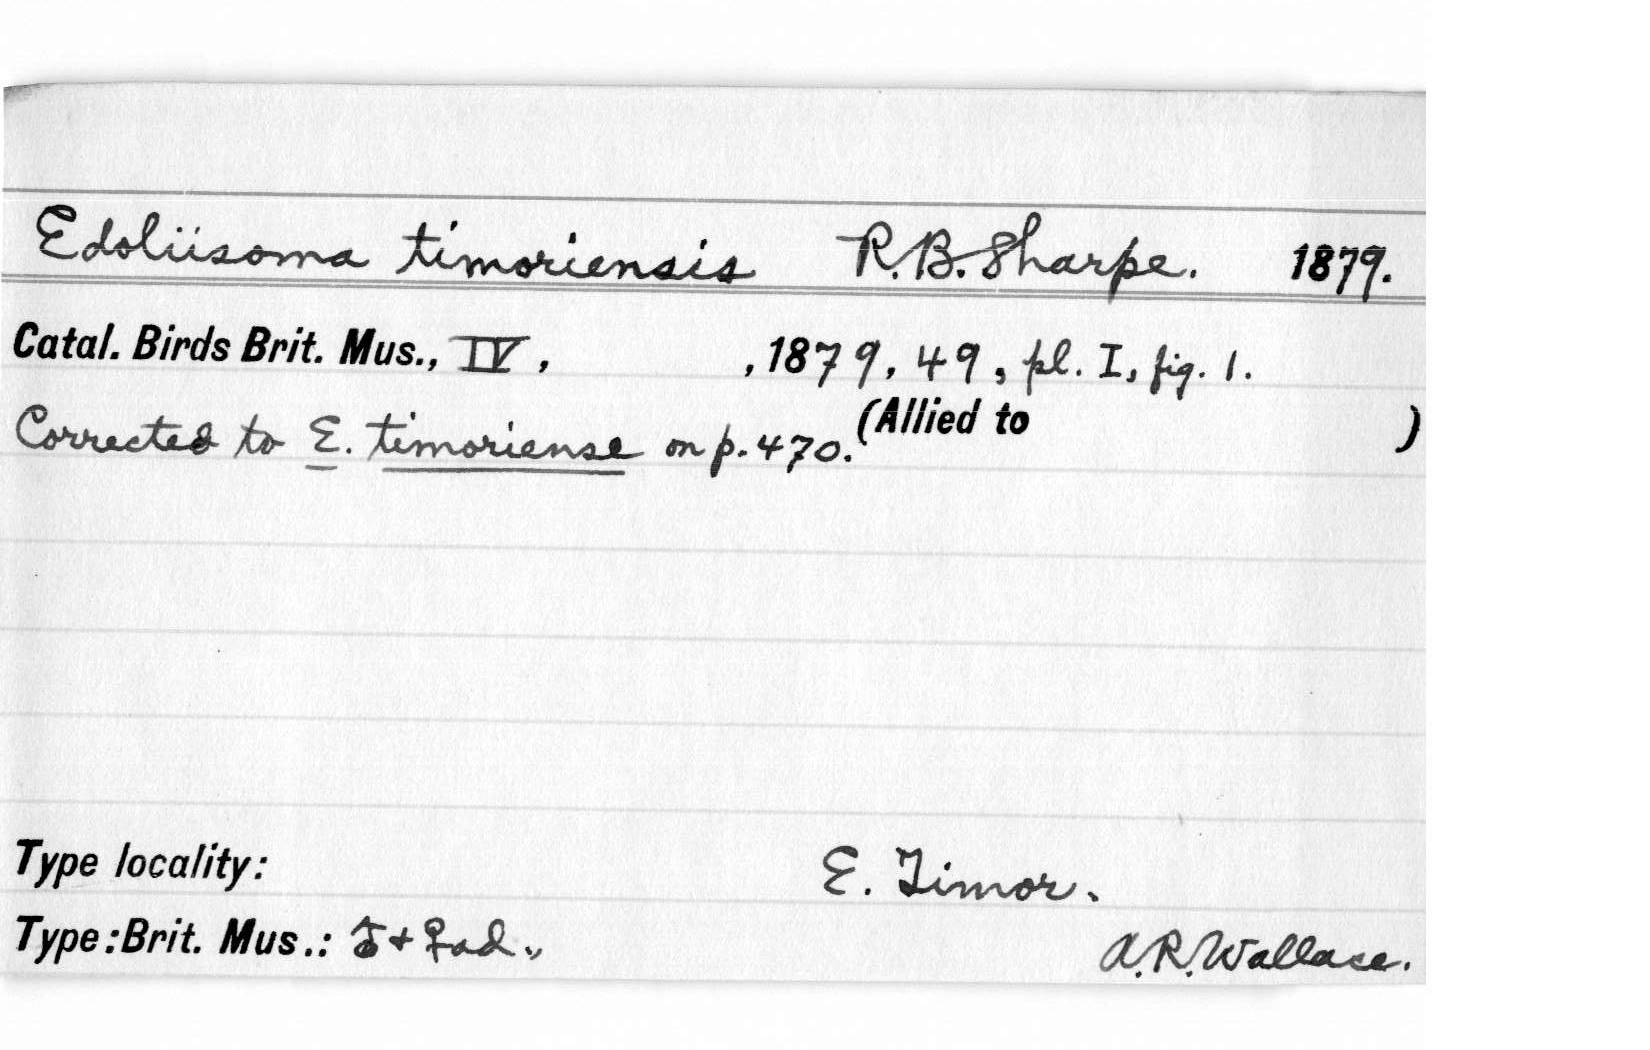 Edoliisoma timoriensis R.B. Sharpe. 1879.
Catal. Birds Brit. Mus., IV, , 1879, 49, pl. I, fig. 1.
(Allied to )
Corrected to E. timoriense on p. 470.
Type locality: E. Timor.
Type: Brit. Mus.: ♂ + ♀ ad.,
A.R. Wallace.